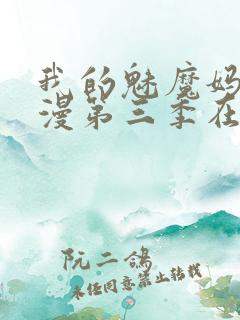 我的魅魔妈
漫第三季在
阮二鸽
未经同意禁止转载